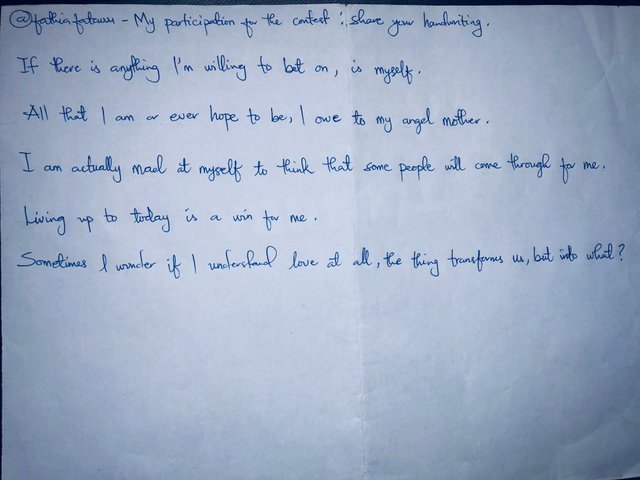 @fathiafatawu - My participation for the contest : Share your handwriting.
If there is anything I'm willing to bet on, is myself.
All that I am or ever hope to be, I owe to my angel mother.
I am actually mad at myself to think that some people will come through for me.
Living up to today is a win for me.
Sometimes I wonder if I understand love at all, the thing transforms us, but into what?